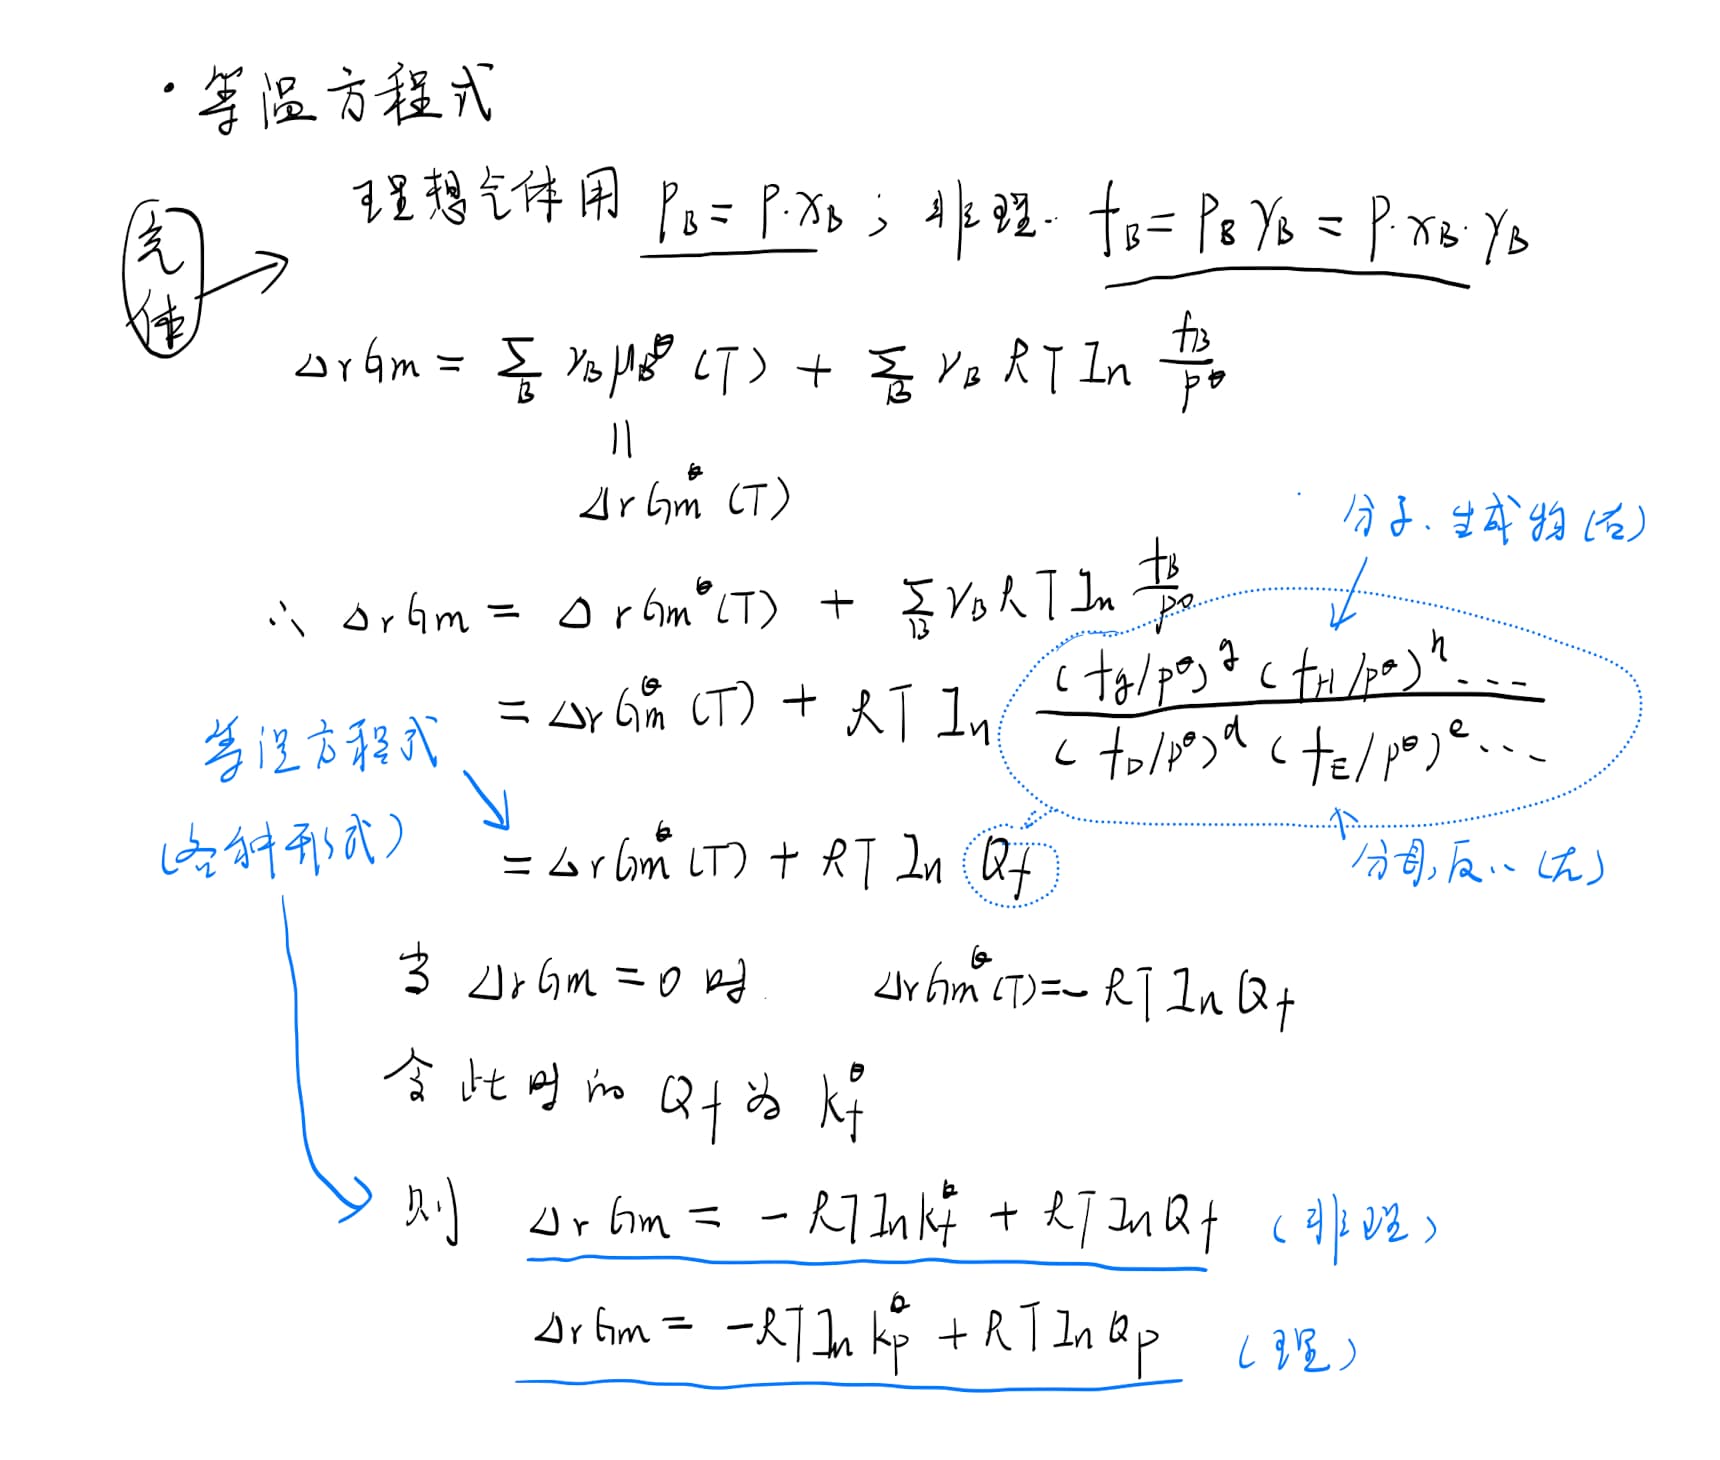 · 等温方程式
气体 → 理想气体用 P_B = P·x_B ; 非理. f_B = P_B γ_B = P·x_B·γ_B
ΔrGm = Σ_B ν_B μ_B^θ (T) + Σ_B ν_B RT ln f_B/p^θ
||
ΔrGm^θ (T)
分子、生成物(右)
∴ ΔrGm = ΔrGm^θ(T) + Σ_B ν_B RT ln f_B/p^θ
= ΔrGm^θ (T) + RT ln (f_g/p^θ)^g (f_H/p^θ)^h ... / (f_D/p^θ)^d (f_E/p^θ)^e ...
等温方程式
(各种形式)
= ΔrGm^θ (T) + RT ln Q_f
分母,反..(左)
当 ΔrGm = 0 时. ΔrGm^θ (T) = - RT ln Q_f
令此时的 Q_f 为 k_f^θ
则 ΔrGm = - RT ln k_f^θ + RT ln Q_f (非理)
ΔrGm = -RT ln k_p^θ + RT ln Q_p (理)